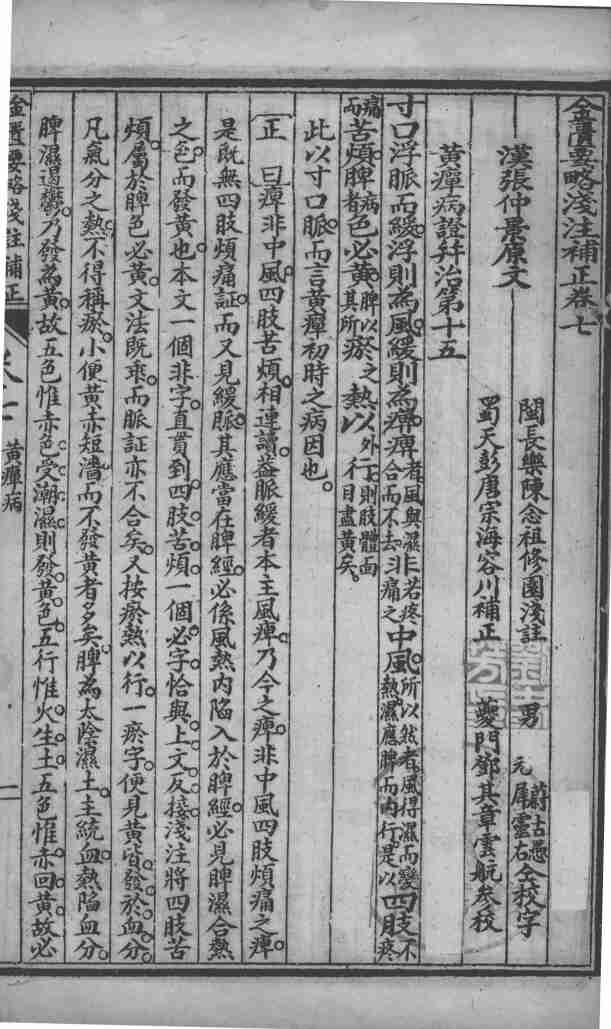 金匱要略淺注補正卷七
漢張仲景原文
閩長樂陳念祖修園淺註　男　蔚古愚　元犀靈石　仝校字
蜀天彭唐宗海容川補正　夔門鄧其章雲航參校
黃癉病證并治第十五
寸口浮脈而緩。浮則為風。緩則為痹。痹者。風與濕合而不去。非若疼痛之中風。所以然者。風得濕而變熱。濕應脾而內行。是以四肢不疼
痛而苦煩。脾病者色必黃。脾以其所瘀之熱以外行。則肢體面目盡黃矣。
此以寸口脈。而言黃癉初時之病因也。
〔正曰〕痹非中風。四肢苦煩。相連讀。蓋脈緩者本主風痹。乃今之痹。非中風四肢煩痛之痹。
是既無四肢煩痛証。而又見緩脈。其應當在脾經。必係風熱內陷入於脾經。必見脾濕合熱
之色。而發黃也。本文一個非字。直貫到四肢苦煩。一個必字。恰與上文反接。淺注將四肢苦
煩。屬於脾色必黃。文法既乖。而脈証亦不合矣。又按瘀熱以行。一瘀字。便見黃皆發於血分。
凡氣分之熱。不得稱瘀。小便黃赤短濇而不發黃者多矣。脾為太陰濕土。主統血。熱陷血分。
脾濕遏鬱。乃發為黃。故五色惟赤色受潮濕則發黃色。五行惟火生土。五色惟赤回黃。故必
金匱要略淺註補正　黃癉病　一